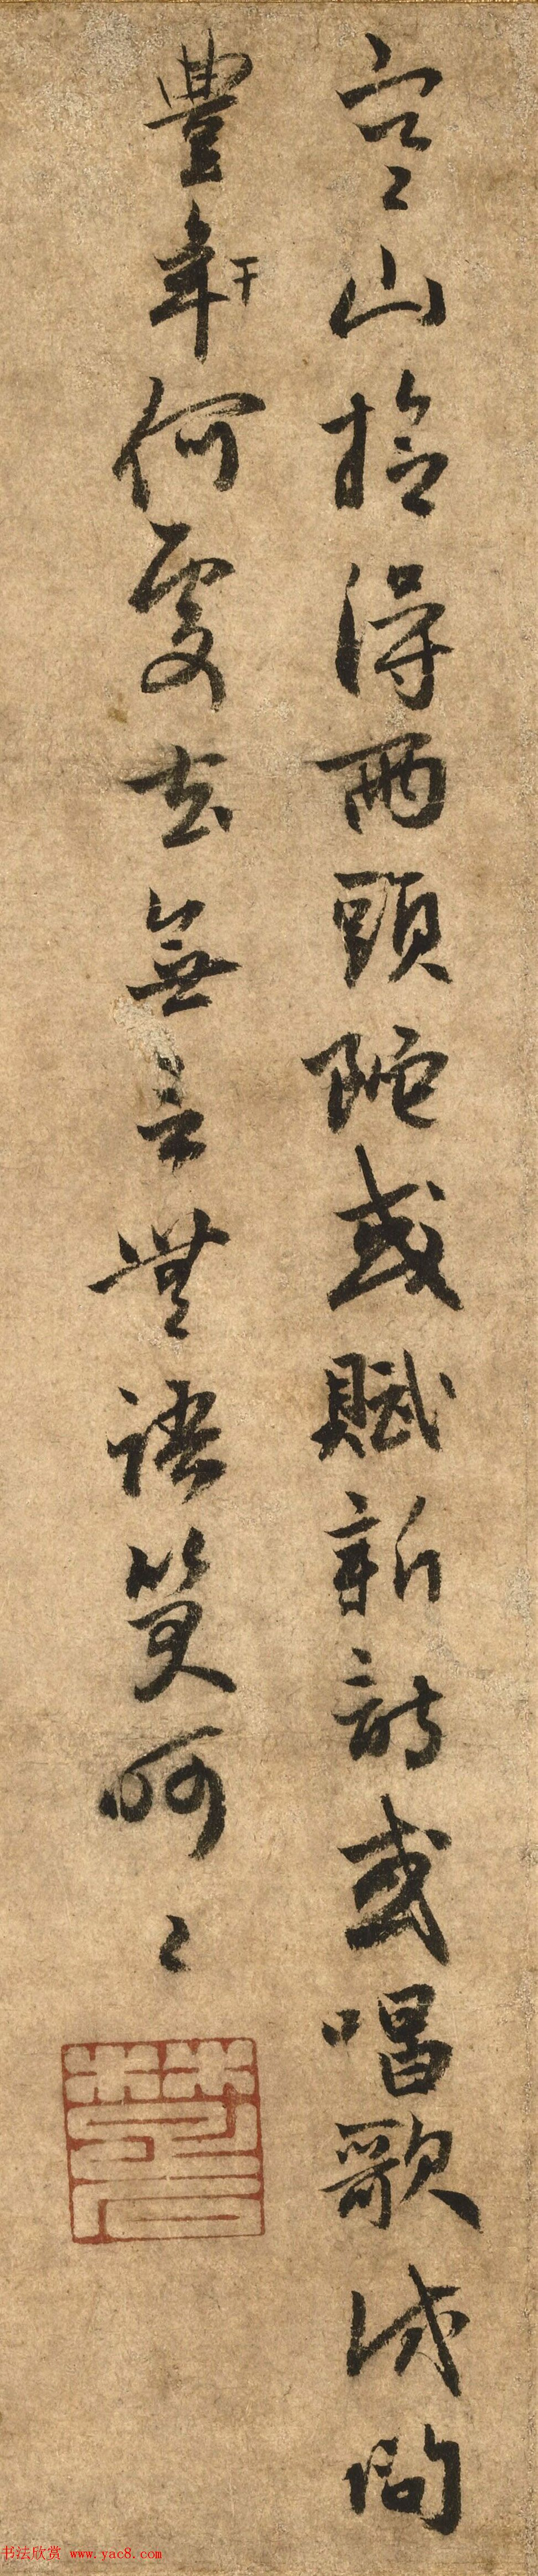 寒山拾得兩頭陀或賦新詩或唱歌試問
豐年干何處去無言無語笑呵〻
楚石
书法欣赏 www.yac8.com